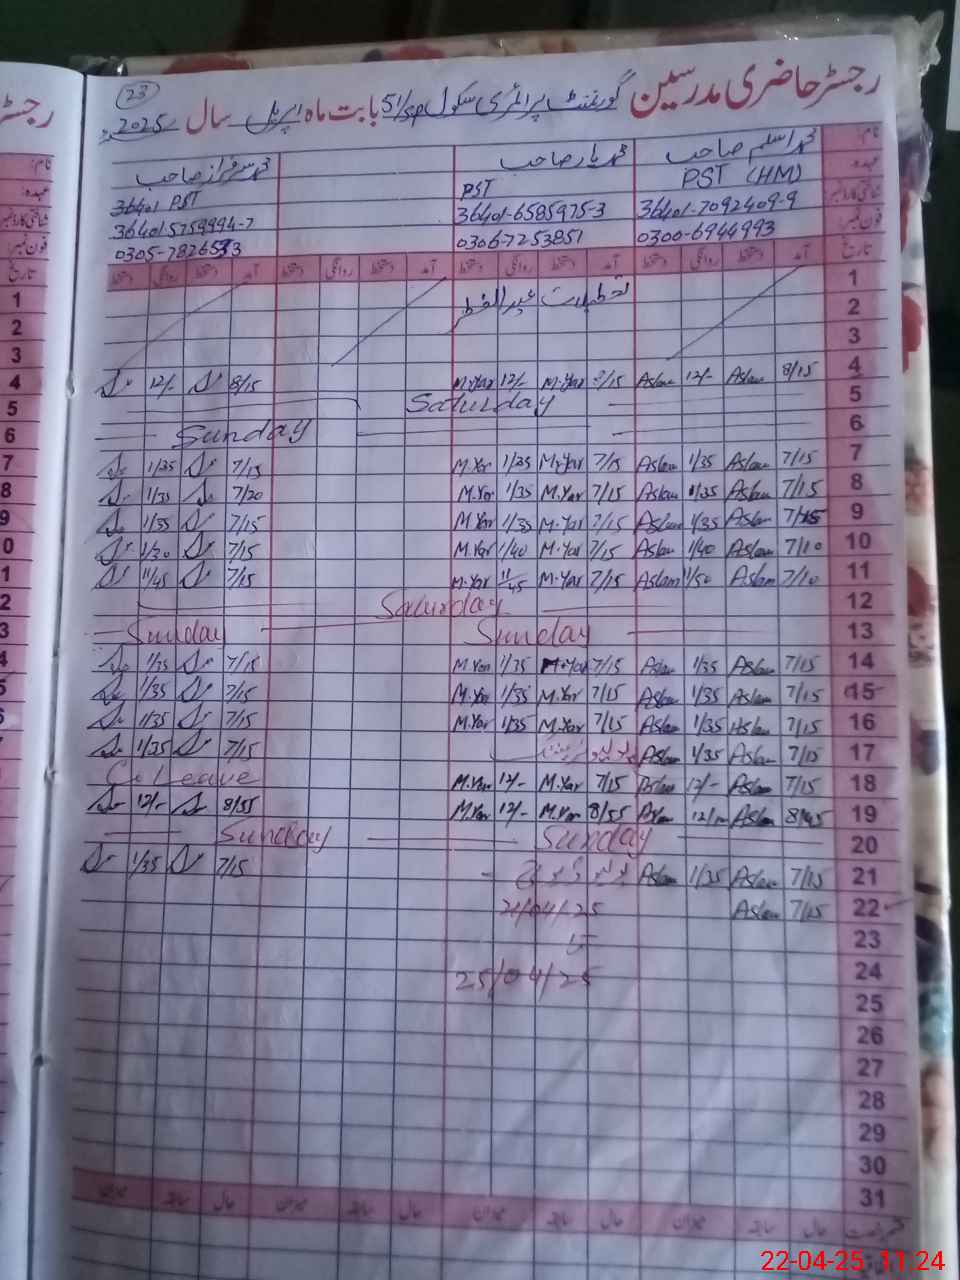 رجسٹر حاضری مدرسین گورنمنٹ پرائمری سکول 51/SP بابت ماہ اپریل سال 2025ء
23
محمد اسلم صاحب محمد یار صاحب محمد سرفراز صاحب
نام:
PST (HM) PST 36401 PST
عہدہ:
36401-7092409-9 36401-6585975-3 364015759994-7
شناختی کارڈ نمبر
0300-6944993 0306-7253851 0305-7826593
فون نمبر:
تاریخ آمد دستخط روانگی دستخط آمد دستخط روانگی دستخط آمد دستخط روانگی دستخط آمد دستخط روانگی دستخط
1
2 تعطیلات عید الفطر
3
12/- 8/15 M.Yar 12/- M.Yar 8/15 Aslam 12/- Aslam 8/15 4
Saturday 5
Sunday 6
1/35 7/15 M.Yar 1/35 M.Yar 7/15 Aslam 1/35 Aslam 7/15 7
1/35 7/20 M.Yar 1/35 M.Yar 7/15 Aslam 1/35 Aslam 7/15 8
1/35 7/15 M.Yar 1/35 M.Yar 7/15 Aslam 1/35 Aslam 7/15 9
7/15 M.Yar 1/40 M.Yar 7/15 Aslam 1/40 Aslam 7/10 10
11/45 7/15 M.Yar 11/45 M.Yar 7/15 Aslam 11/50 Aslam 7/10 11
Saturday 12
Sunday Sunday 13
1/35 7/15 M.Yar 1/35 M.Yar 7/15 Aslam 1/35 Aslam 7/15 14
1/35 7/15 M.Yar 1/35 M.Yar 7/15 Aslam 1/35 Aslam 7/15 15
1/35 7/15 M.Yar 1/35 M.Yar 7/15 Aslam 1/35 Aslam 7/15 16
1/35 7/15 Aslam 1/35 Aslam 7/15 17
C. Leave M.Yar 12/- M.Yar 7/15 Aslam 12/- Aslam 7/15 18
12/- 8/55 M.Yar 12/- M.Yar 8/55 Aslam Aslam 8/45 19
Sunday Sunday 20
1/35 7/15 Aslam 1/35 Aslam 7/15 21
21/04/25 Aslam 7/15 22
تا 23
25/04/25 24
25
26
27
28
29
30
31
حال سابقہ میزان حال سابقہ میزان حال سابقہ میزان حال سابقہ میزان
22-04-25 11:24